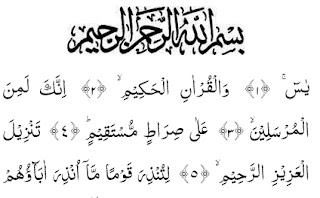 بِسْمِ اللّٰهِ الرَّحْمٰنِ الرَّحِيْمِ
يٰسٓ ۚ ﴿۱﴾ وَالْقُرْاٰنِ الْحَكِيْمِ ۙ ﴿۲﴾ اِنَّكَ لَمِنَ
الْمُرْسَلِيْنَ ۙ ﴿۳﴾ عَلٰى صِرَاطٍ مُّسْتَقِيْمٍ ؕ ﴿۴﴾ تَنْزِيْلَ
الْعَزِيْزِ الرَّحِيْمِ ۙ ﴿۵﴾ لِتُنْذِرَ قَوْمًا مَّاۤ اُنْذِرَ اٰبَآؤُهُمْ